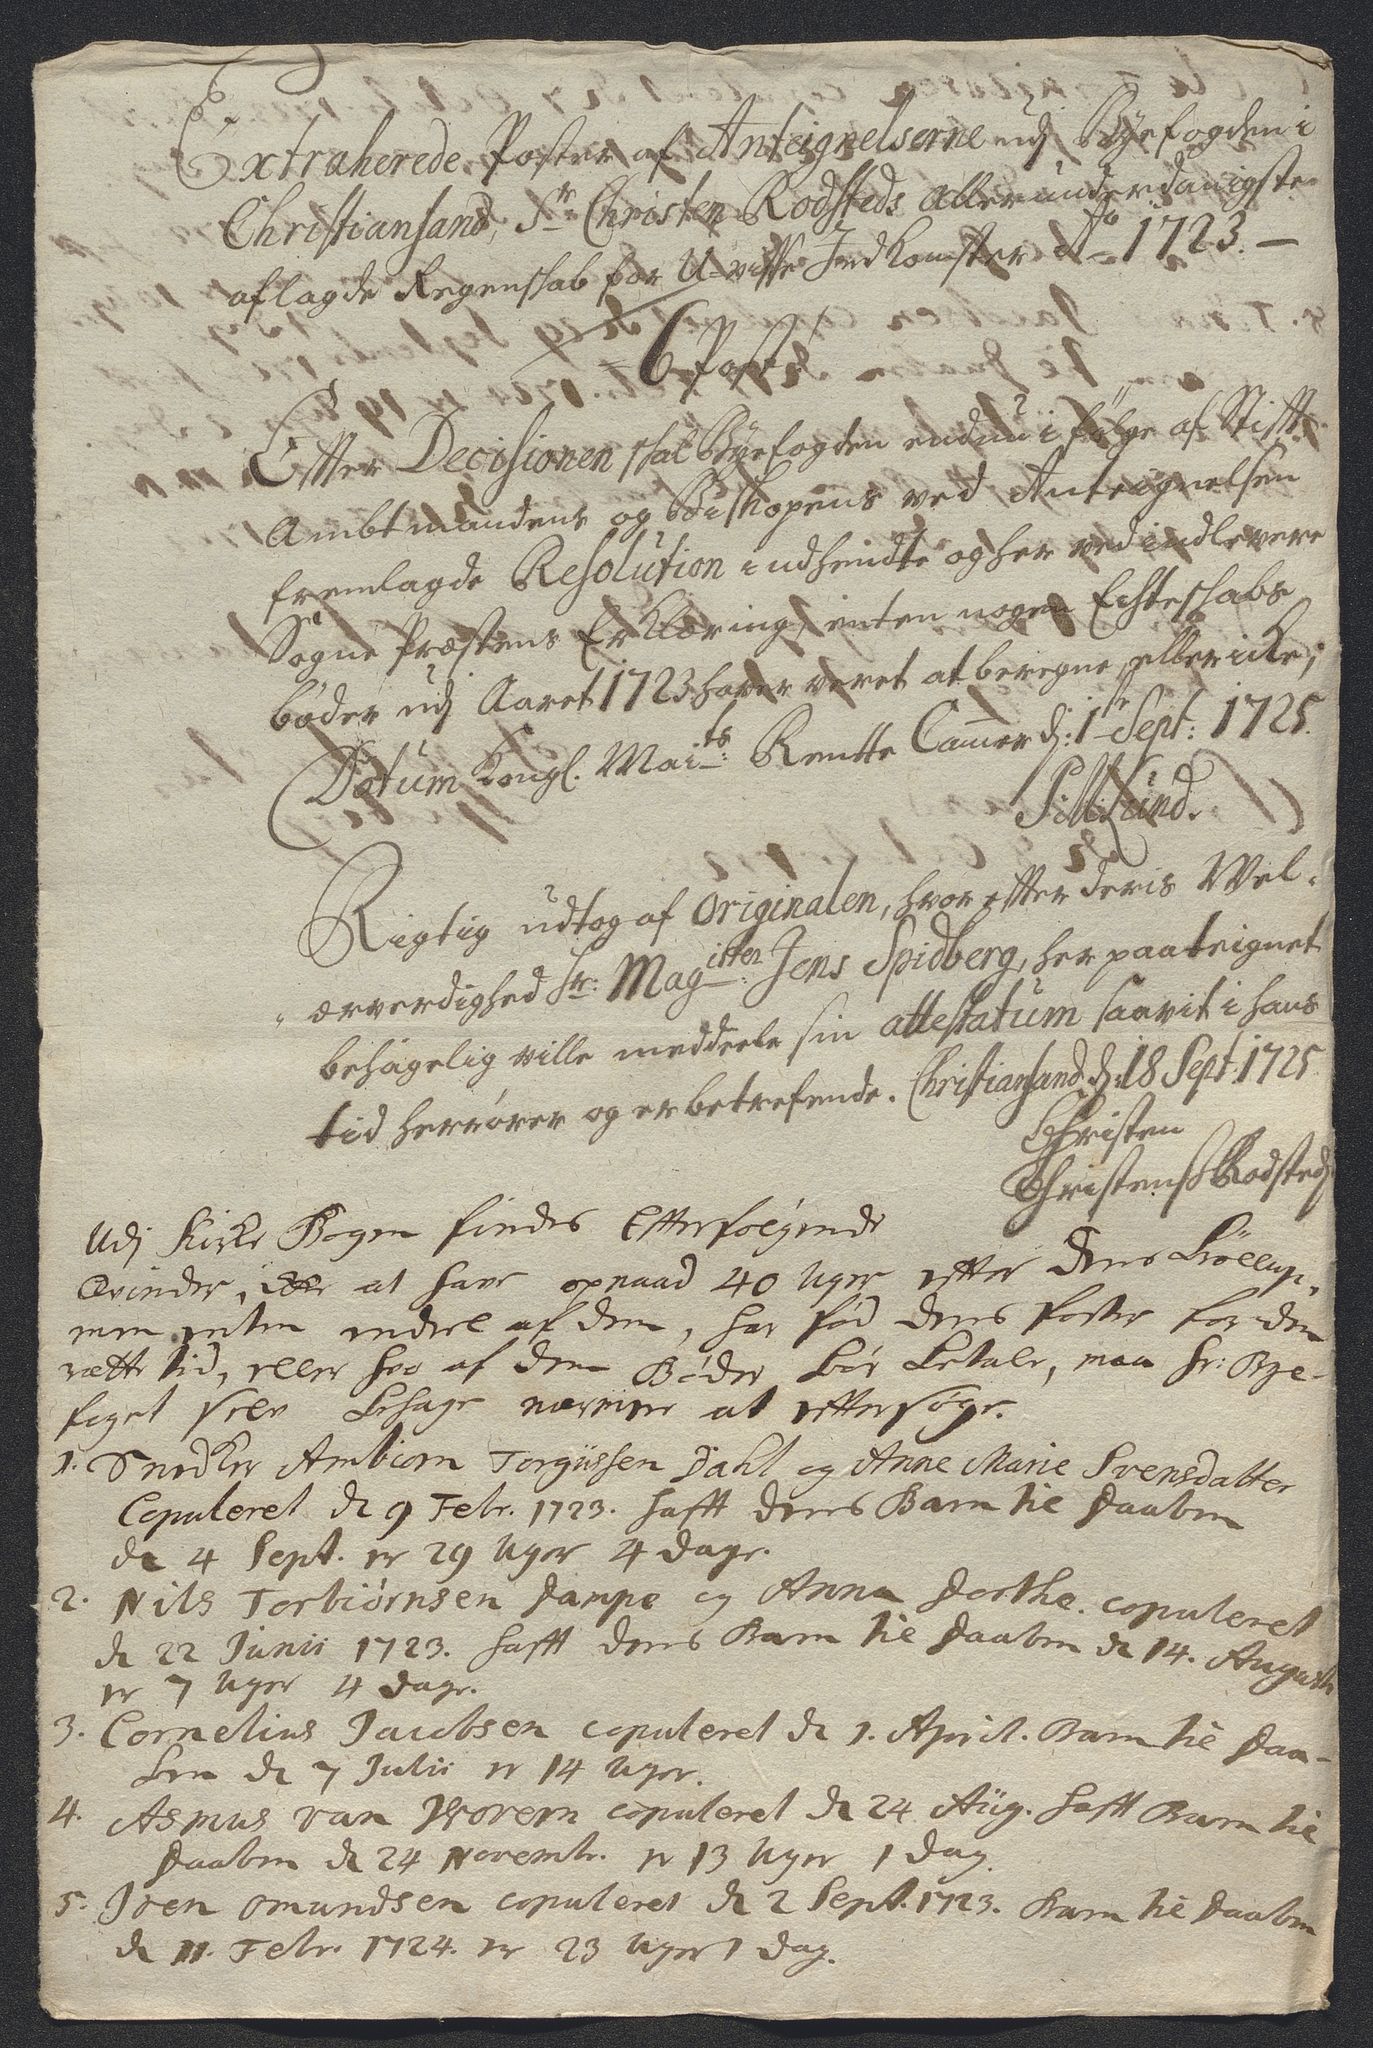 Extraherede Poster af Anteignelserne udj Byefogden i
Christiansand, Sr. Christen Rodsteds allerunderdanigste
aflagde Regenskab for U-visse Indkomster Ao 1723. —
6 Post
Efter Decisionen skal Byefogden endnu i følge af Stifft
Ambtmandens og Biskopens ved Anteignelsen
fremlagde Resolution indhendte og her ved indlevere
Sogne Præstens Erklæring, enten nogen Echteskabs
bøder udj Aaret 1723 haver veret at beregne, eller icke;
Datum Kongl. Maits: Rentte Cammer dj: 1te Sept: 1725.
P: M: Lund.
Rigtig udtog af originalen, hvor effter deris Wel-
ærverdighed Hr: Magister: Jens Spidberg, her paateignet
behagelig ville meddeele sin attestatum saavit i hans
tid herrører og er betrefende. Christiansand dj: 18 Sept: 1725
Christen
Christens: Rodsted
Udj Kirke Bogen findes Efterfølgende
Qvinder, icke at have opnaad 40 Uger efter deres Brøllup,
men enten endeel af dem, har fød deres foster for den
rætte tid, eller hvo af dem Bøder bør betale, maa Hr: Bye-
foget selv behage nærmere at efftersøge.
1. Snedker Ambiorn Torgussen Dahl og Anne Marie Svensdatter
Copuleret d 9 Febr. 1723. hafft deres Barn til Daaben
d 4 Sept. er 29 Uger 4 Dage.
2. Nils Torbiørnsen Dampe og Anna Dorthe. copuleret
d 22 Junii 1723. hafft deres Barn til Daaben d 14. Augusti
er 7 Uger 4 Dage.
3. Cornelius Jacobsen copuleret d 1. April. Barn til Daa-
ben d 7 Julii er 14 Uger.
4. Asmus van copuleret d 24 Aug. hafft Barn til
Daaben d 24 Novembr. er 13 Uger 1 Dag.
5. Iven Omundsen copuleret d 2 Sept. 1723. Barn til Daaben
d 11. Febr. 1724. er 23 Uger 1 Dag.